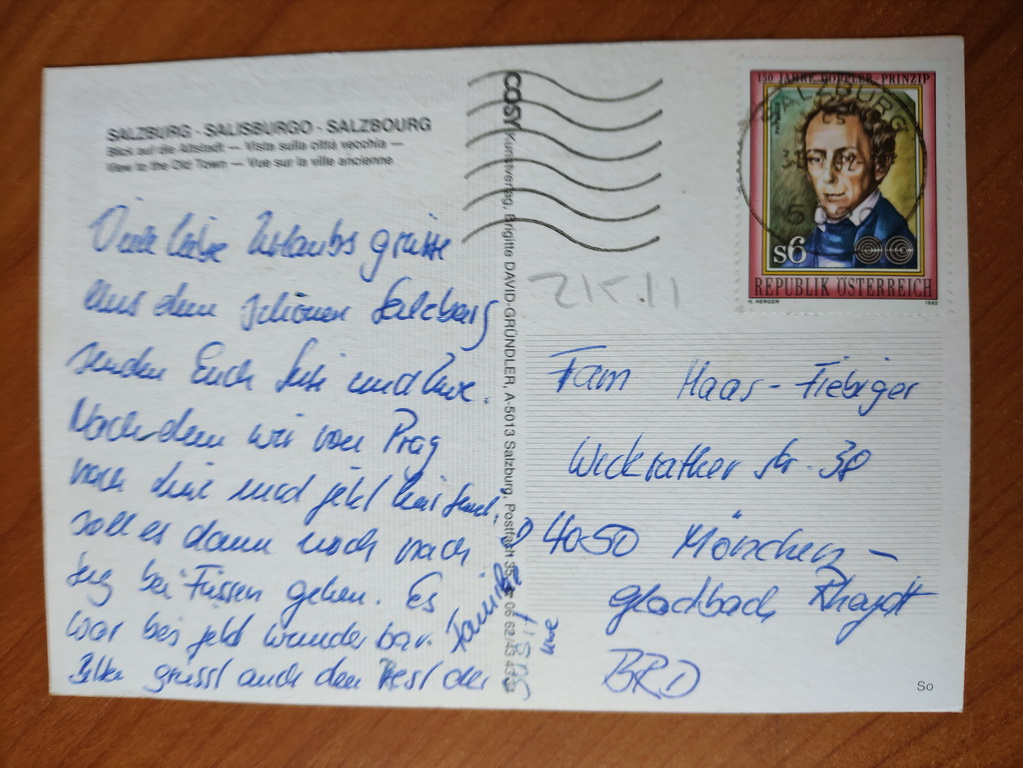 SALZBURG - SALISBURGO - SALZBOURG
Blick auf die Altstadt — Vista sulla città vecchia —
View to the Old Town — Vue sur la ville ancienne
Viele liebe Urlaubs grüsse
aus dem schönen Salzburg
senden Euch und Uwe.
Nachdem wir von Prag
nach und jetzt hier sind,
soll es dann noch nach
bei Füssen gehen. Es
war bis jetzt wunderbar.
grüsst auch den Rest der
Familie
uwe
COSY Kunstverlag, Brigitte DAVID-GRÜNDLER, A-5013 Salzburg, Postfach 35, 06 62/43
150 JAHRE DOPPLER-PRINZIP
S6
REPUBLIK ÖSTERREICH
H. HERGER 1992
SALZBURG
215.11
Fam Haas - Fiebiger
Wickrather Str. 38
4050 Mönchen -
gladbach Rheydt
BRD
So